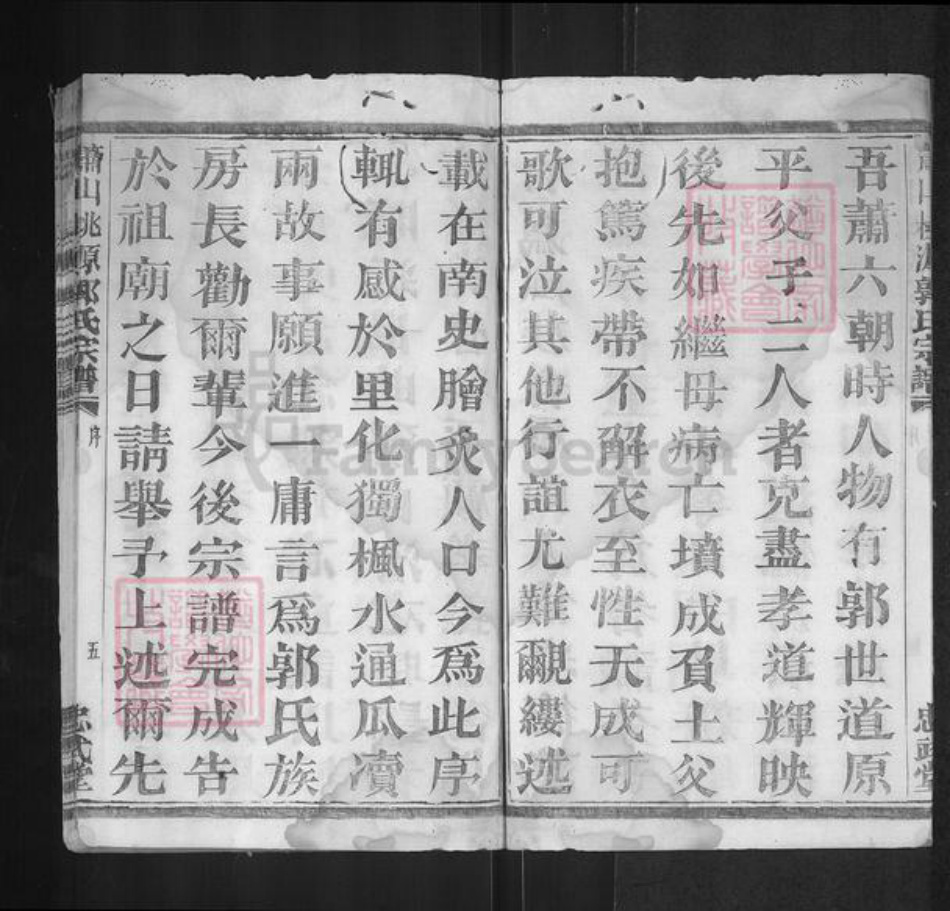 吾蕭六朝時人物有郭世道原
平父子二人者克盡孝道輝映
後先如繼母病亡墳成負土父
抱篤疾帶不解衣至性天成可
歌可泣其他行誼尤難覼縷述
載在南史膾炙人口今爲此序
輒有感於里化獨楓水通瓜瀆
兩故事願進一庸言爲郭氏族
房長勸爾輩今後宗譜完成告
於祖廟之日請舉予上述爾先
蕭山桃源郭氏宗譜
序
五
FamilySearch